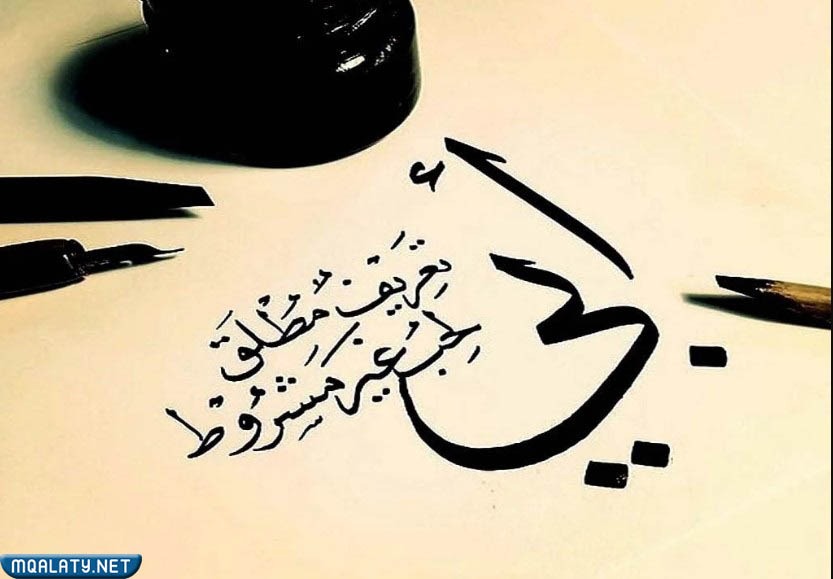 أبي
تعريف مطلق
لحب غير مشروط
MQALATY.NET